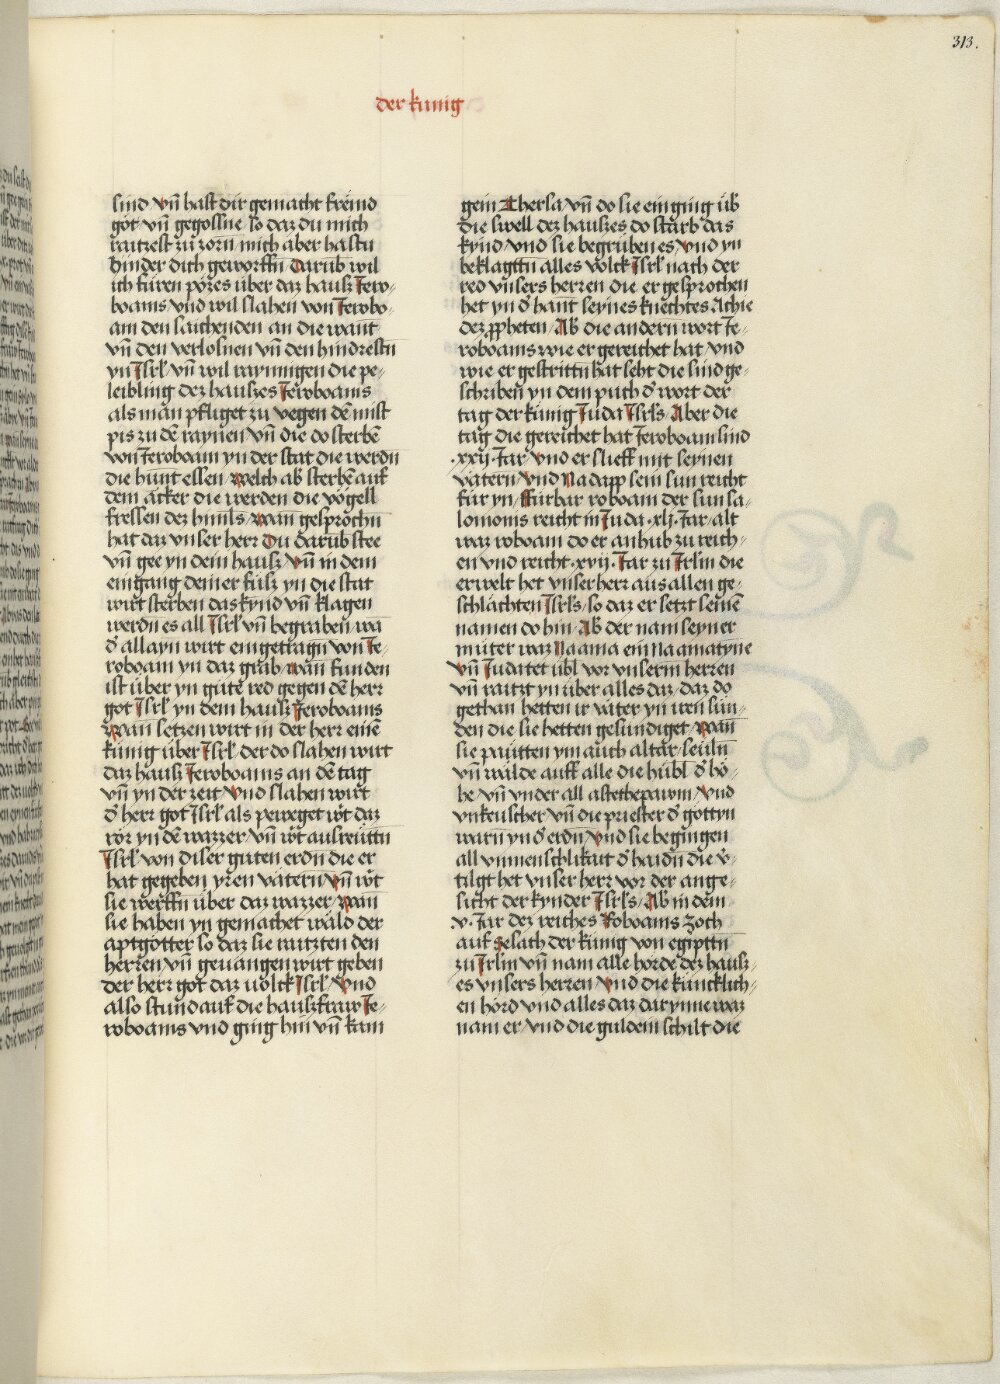 313.
der kunig
sind vn̄ hast dir gemacht fremd
göt vn̄ gegossne so daz du mich
raitzest zu zorn mich aber hastu
hinder dich geworffn̄ Darüb wil
ich füren pözes über daz hausz Jero-
boams vnd wil slahen von Jerobo-
am den saichenden an die want
vn̄ den verlosnen vn̄ den hindrestn̄
yn Jsrl̄ vn̄ wil raynnigen die pe-
leibling dez hauszes Jeroboams
als man pfliget zu vegen dē mist
pis zu dē raynen vn̄ die do sterbē
von Jeroboam yn der stat die werdn̄
die hunt essen / welch ab̄ sterbē auf
dem acker die werden die vögell
fressen dez himls / wān gesprochn̄
hat daz vnser herr Du darüb stee
vn̄ gee yn dein hausz / vn̄ in dem
eingang deiner füsz yn die stat
wirt sterben das kynd vn̄ klagen
werdn̄ es all Jsrl̄ vn̄ begraben wā
d̄ allayn wirt eingetragn̄ von Je-
roboam yn daz grab / wān funden
ist über yn gute red gegen dē herr
got Jsrl̄ yn dem hausz Jeroboams
wān setzen wirt in der herr einē
künig über Jsrl̄ der do slahen wirt
daz hausz Jeroboams an dē tag
vn̄ yn der zeit / Vnd slahen wirt
d̄ herr got Jsrl̄ als peweget wt̄ daz
ror yn dē wazzer / vn̄ wt̄ ausreuttn̄
Jsrl̄ von diser guten erdn̄ die er
hat gegeben yren vatern / vn̄ wt̄
sie werffn̄ über daz wazzer / wān
sie haben yn gemachet wäld der
aptgötter so daz sie raitzten den
herren / vn̄ geuangen wirt geben
der herr got daz uolck Jsrl̄ / Vnd
also stund auf die hauszfraw Je-
roboams vnd ging hin vn̄ kam
gein Thersa vn̄ do sie einging üb̄
die swell dez hauszes do starb das
kynd / vnd sie begruben es / vnd yn
beklagttn̄ alles volck Jsrl̄ nach der
red vnsers herren die er gesprochen
het yn d̄ hant seynes knechtes Achie
dez ꝓpheten / Ab̄ die andern wort Je-
roboams wie er gereichet hat / vnd
wie er gestrittn̄ hat seht die sind ge-
schriben yn dem puch d̄ wort der
tag der künig Juda Jsrls / Aber die
tag die gereichet hat Jeroboam sind
.xxij. Jar / vnd er slieff mit seynen
vätern / vnd Nadapp sein sun reicht
für yn / ffürbar roboam der sun sa-
lomonis reicht in Juda .xlj. Jar / alt
waz roboam do er anhub zu reich-
en vnd reicht .xvij. Jar zu Jrlm̄ die
erwelt het vnser herr aus allen ge-
schlächten Jsrls / so daz er setzt seinē
namen do hin / Ab̄ der nam seyner
muter waz Naama ein Naamatyne
vn̄ Juda tet übl̄ vor vnserm herren
vn̄ raitzt yn über alles daz / daz do
gethan hetten ir väter yn iren sün-
den die sie hetten gesündiget / wān
sie pautten ym auch altär / seuln̄
vn̄ wälde auff alle die hübl̄ d̄ hö-
he vn̄ vnder all astet bepawm / vnd
vnkeuscher vn̄ die priester d̄ göttyn
warn̄ yn d̄ erdn̄ / vnd sie begingen
all vnmenschlikait d̄ haidn̄ die v̄-
tilgt het vnser herr vor der ange-
sicht der kynder Jsrls / Ab̄ in dem
.v. Jar dez reiches Roboams zoch
auf Sesach der künig von egipttn̄
zu Jrlm̄ vn̄ nam alle hörde dez hausz-
es vnsers herren / vnd die küncklich-
en hörd vnd alles daz darynne waz
nam er / vnd die guldein schilt die